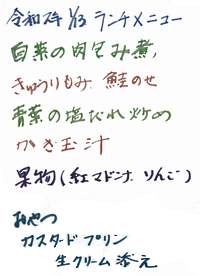 令和7年 1/13 ランチメニュー
白菜の肉包み煮,
きゅうりもみ 鮭のせ
青菜の塩だれ炒め
かき玉汁
果物(紅マドンナ りんご)
おやつ
カスタードプリン
生クリーム添え